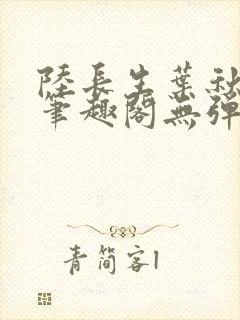 陸長生葉秋
筆趣閣無彈
青簡客1